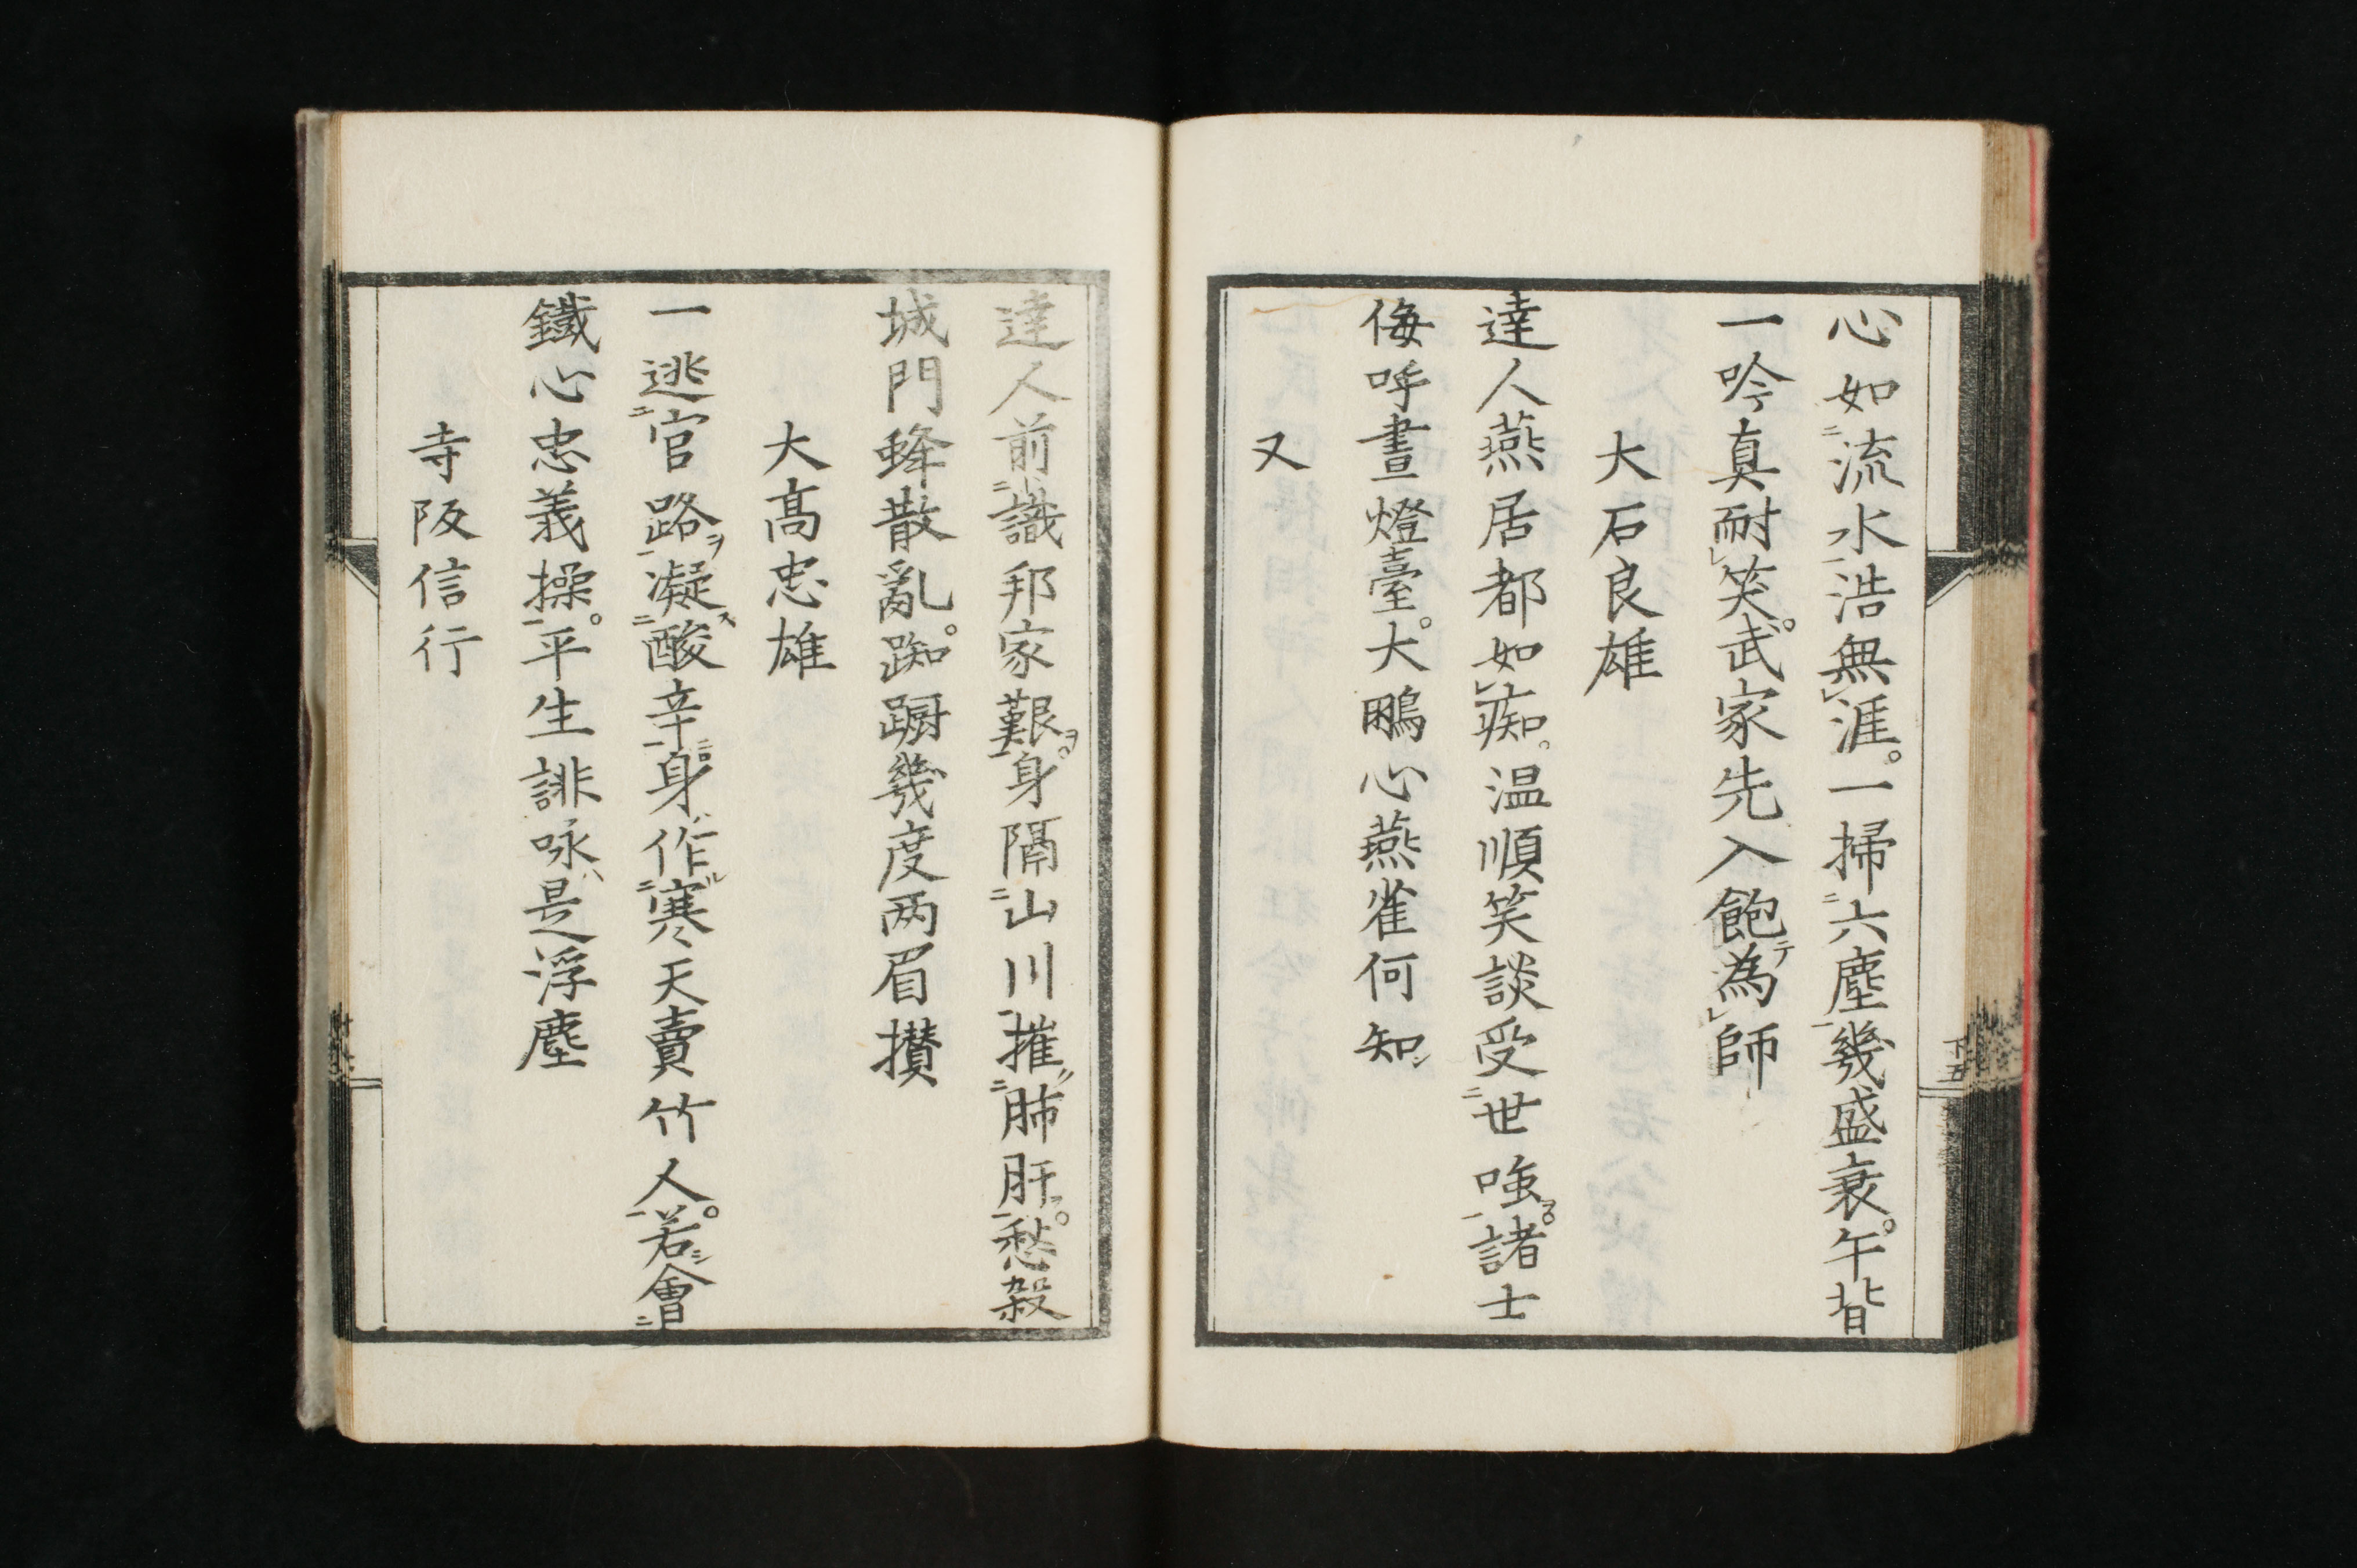 心如流水浩無涯。一掃六塵幾盛衰。午背
一吟真耐笑。武家先入飽為師
大石良雄
達人燕居都如痴。温順笑談受世嗤。諸士
侮呼晝燈臺。大鵬心燕雀何知
又
達人前識邦家艱。身隔山川摧肺肝。愁殺
城門蜂散亂。踟蹰幾度两眉攅
大髙忠雄
一逃官路凝酸辛。身作寒天賣竹人。若會
鐵心忠義操。平生誹咏是浮塵
寺阪信行
下五